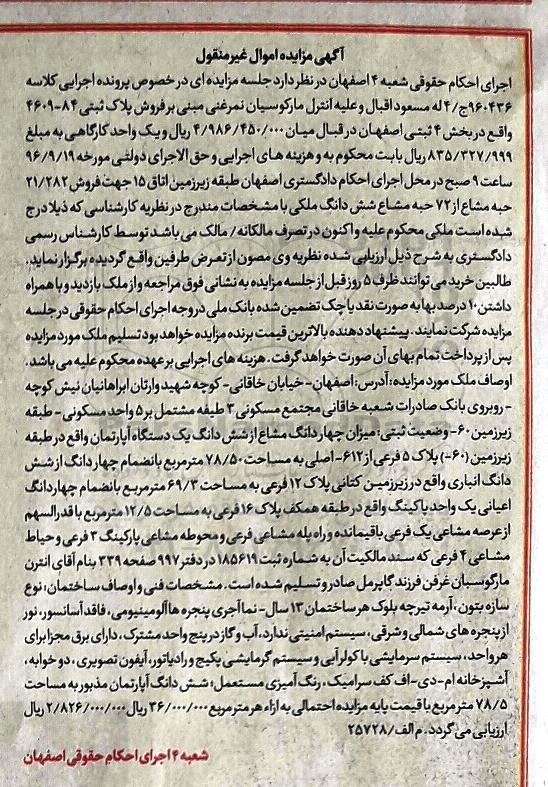 آگهی مزایده اموال غیرمنقول
اجرای احکام حقوقی شعبه ۴ اصفهان در نظر دارد جلسه مزایده ای در خصوص پرونده اجرایی کلاسه
۹۶۰۴۳۶ج/۴ له مسعود اقبال و علیه انترل مارکوسیان نمرغنی مبنی بر فروش پلاک ثبتی ۸۴-۴۶۰۹
واقع در بخش ۴ ثبتی اصفهان در قبال میان ۴/۹۸۶/۴۵۰/۰۰۰ ریال و یک واحد کارگاهی به مبلغ
۸۳۵/۳۲۷/۹۹۹ ریال بابت محکوم به و هزینه های اجرایی و حق الاجرای دولتی مورخه ۹۶/۹/۱۹
ساعت ۹ صبح در محل اجرای احکام دادگستری اصفهان طبقه زیرزمین اتاق ۱۵ جهت فروش ۲۱/۲۸۲
حبه مشاع از ۷۲ حبه مشاع شش دانگ ملکی با مشخصات مندرج در نظریه کارشناسی که ذیلا درج
شده است ملکی محکوم علیه و اکنون در تصرف مالکانه/ مالک می باشد توسط کارشناس رسمی
دادگستری به شرح ذیل ارزیابی شده نظریه وی مصون از تعرض طرفین واقع گردیده برگزار نماید.
طالبین خرید می توانند ظرف ۵ روز قبل از جلسه مزایده به نشانی فوق مراجعه و از ملک بازدید و با همراه
داشتن ۱۰ درصد بها به صورت نقد یا چک تضمین شده بانک ملی در وجه اجرای احکام حقوقی در جلسه
مزایده شرکت نمایند. پیشنهاد دهنده بالاترین قیمت برنده مزایده خواهد بود تسلیم ملک مورد مزایده
پس از پرداخت تمام بهای آن صورت خواهد گرفت. هزینه های اجرایی بر عهده محکوم علیه می باشد.
اوصاف ملک مورد مزایده: آدرس: اصفهان- خیابان خاقانی- کوچه شهید وارثان ابراهانیان نیش کوچه
- روبروی بانک صادرات شعبه خاقانی مجتمع مسکونی ۳ طبقه مشتمل بر ۵ واحد مسکونی- طبقه
زیرزمین ۶۰- وضعیت ثبتی: میزان چهار دانگ مشاع از شش دانگ یک دستگاه آپارتمان واقع در طبقه
زیرزمین (۶۰-) پلاک ۵ فرعی از ۶۱۲- اصلی به مساحت ۷۸/۵۰ مترمربع بانضمام چهار دانگ از شش
دانگ انباری واقع در زیرزمین کتانی پلاک ۱۲ فرعی به مساحت ۶۹/۳ مترمربع بانضمام چهار دانگ
اعیانی یک واحد پاکینگ واقع در طبقه همکف پلاک ۱۶ فرعی به مساحت ۱۲/۵ مترمربع با قدرالسهم
از عرصه مشاعی یک فرعی باقیمانده و راه پله مشاعی فرعی و محوطه مشاعی پارکینگ ۳ فرعی و حیاط
مشاعی ۴ فرعی که سند مالکیت آن به شماره ثبت ۱۸۵۶۱۹ در دفتر ۹۹۷ صفحه ۳۳۹ بنام آقای انترن
مارگوسیان غرفن فرزند گاپرمل صادر و تسلیم شده است. مشخصات فنی و اوصاف ساختمان: نوع
سازه بتون، آرمه تیرچه بلوک هر ساختمان ۱۳ سال- نما آجری پنجره ها آلومینیومی، فاقد آسانسور، نور
از پنجره های شمالی و شرقی، سیستم امنیتی ندارد، آب و گاز در پنج واحد مشترک، دارای برق مجزا برای
هر واحد، سیستم سرمایشی با کولر آبی و سیستم گرمایشی پکیج و رادیاتور، آیفون تصویری، دو خوابه،
آشپزخانه ام-دی-اف کف سرامیک، رنگ آمیزی مستعمل؛ شش دانگ آپارتمان مذبور به مساحت
۷۸/۵ مترمربع با قیمت پایه مزایده احتمالی به ازاء هر مترمربع ۳۶/۰۰۰/۰۰۰ ریال ۲/۸۲۶/۰۰۰/۰۰۰ ریال
ارزیابی می گردد. م الف/۲۵۷۲۸
شعبه ۴ اجرای احکام حقوقی اصفهان